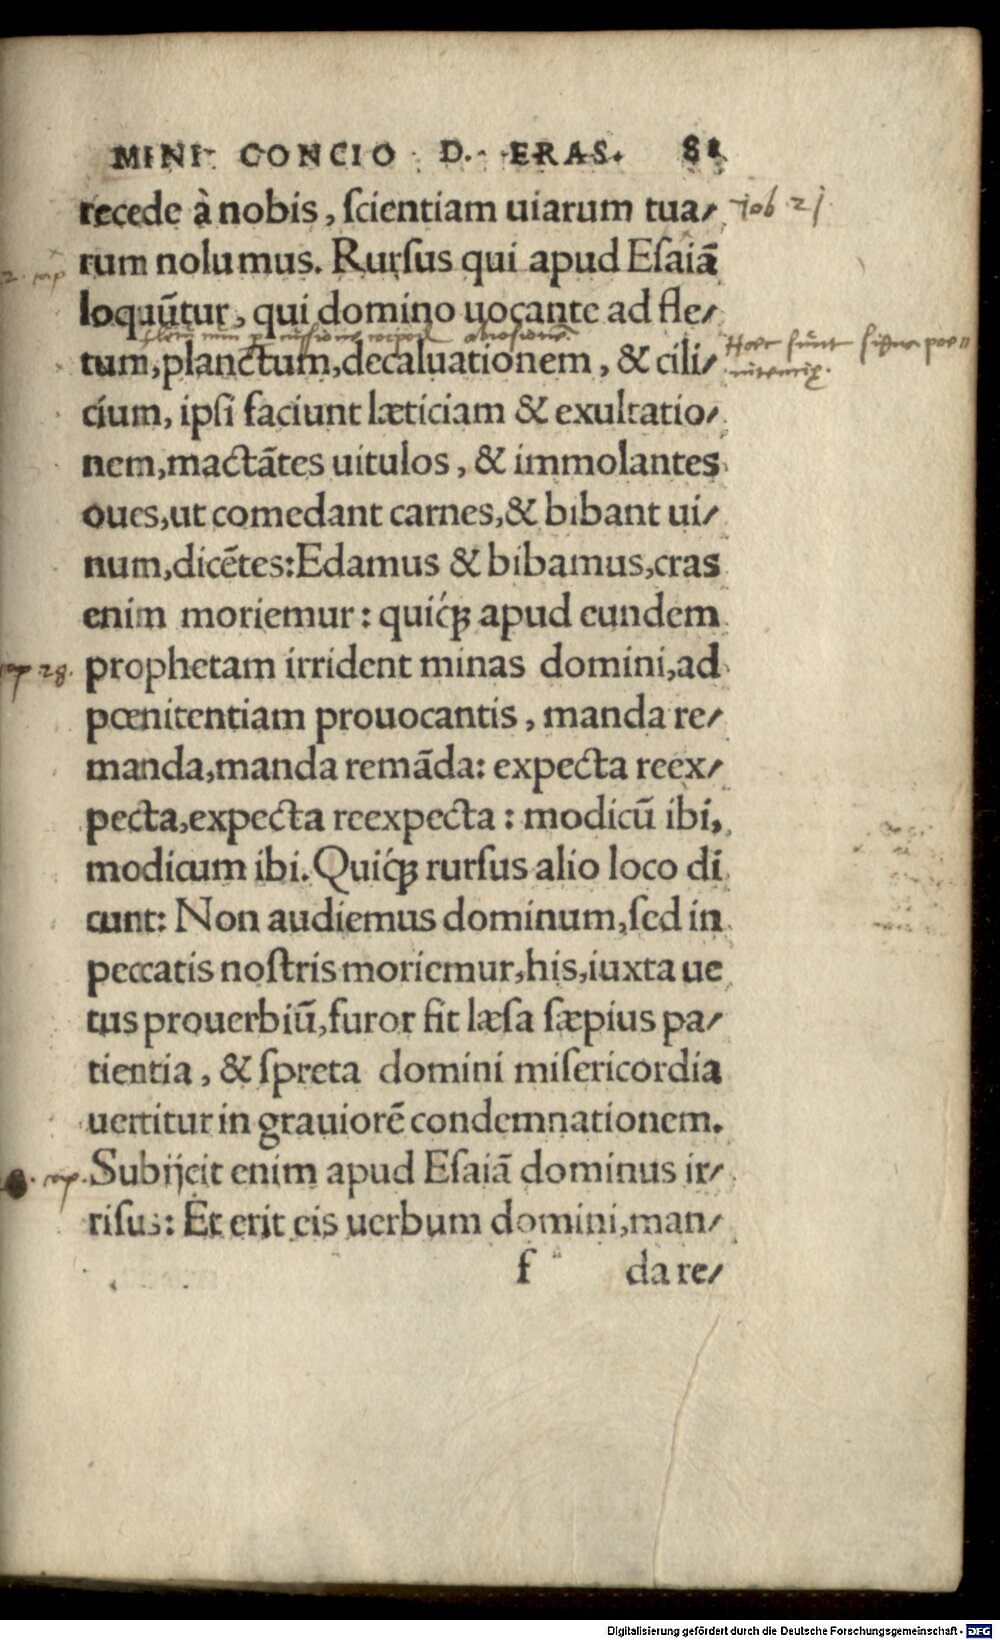 MINI CONCIO D. ERAS. 81
recede à nobis, ſcientiam uiarum tua/ iob 21
rum nolumus. Rurſus qui apud Eſaiā
loquūtur, qui domino uocante ad fle/
tum, planctum, decaluationem, & cili/ Haec sunt signa poe
cium, ipſi faciunt læticiam & exultatio/
nem, mactātes uitulos, & immolantes
oues, ut comedant carnes, & bibant ui/
num, dicētes: Edamus & bibamus, cras
enim moriemur: quiq́ꝫ apud eundem
28. prophetam irrident minas domini, ad
pœnitentiam prouocantis, manda re/
manda, manda remāda: expecta reex/
pecta, expecta reexpecta: modicū ibi,
modicum ibi. Quiq́ꝫ rurſus alio loco di
cunt: Non audiemus dominum, ſed in
peccatis noſtris moriemur, his, iuxta ue
tus prouerbiū, furor fit læſa ſæpius pa/
tientia, & ſpreta domini miſericordia
uertitur in grauiorē condemnationem.
Subijcit enim apud Eſaiā dominus ir/
riſus: Et erit eis uerbum domini, man/
f da re/
Digitalisierung gefördert durch die Deutsche Forschungsgemeinschaft - DFG